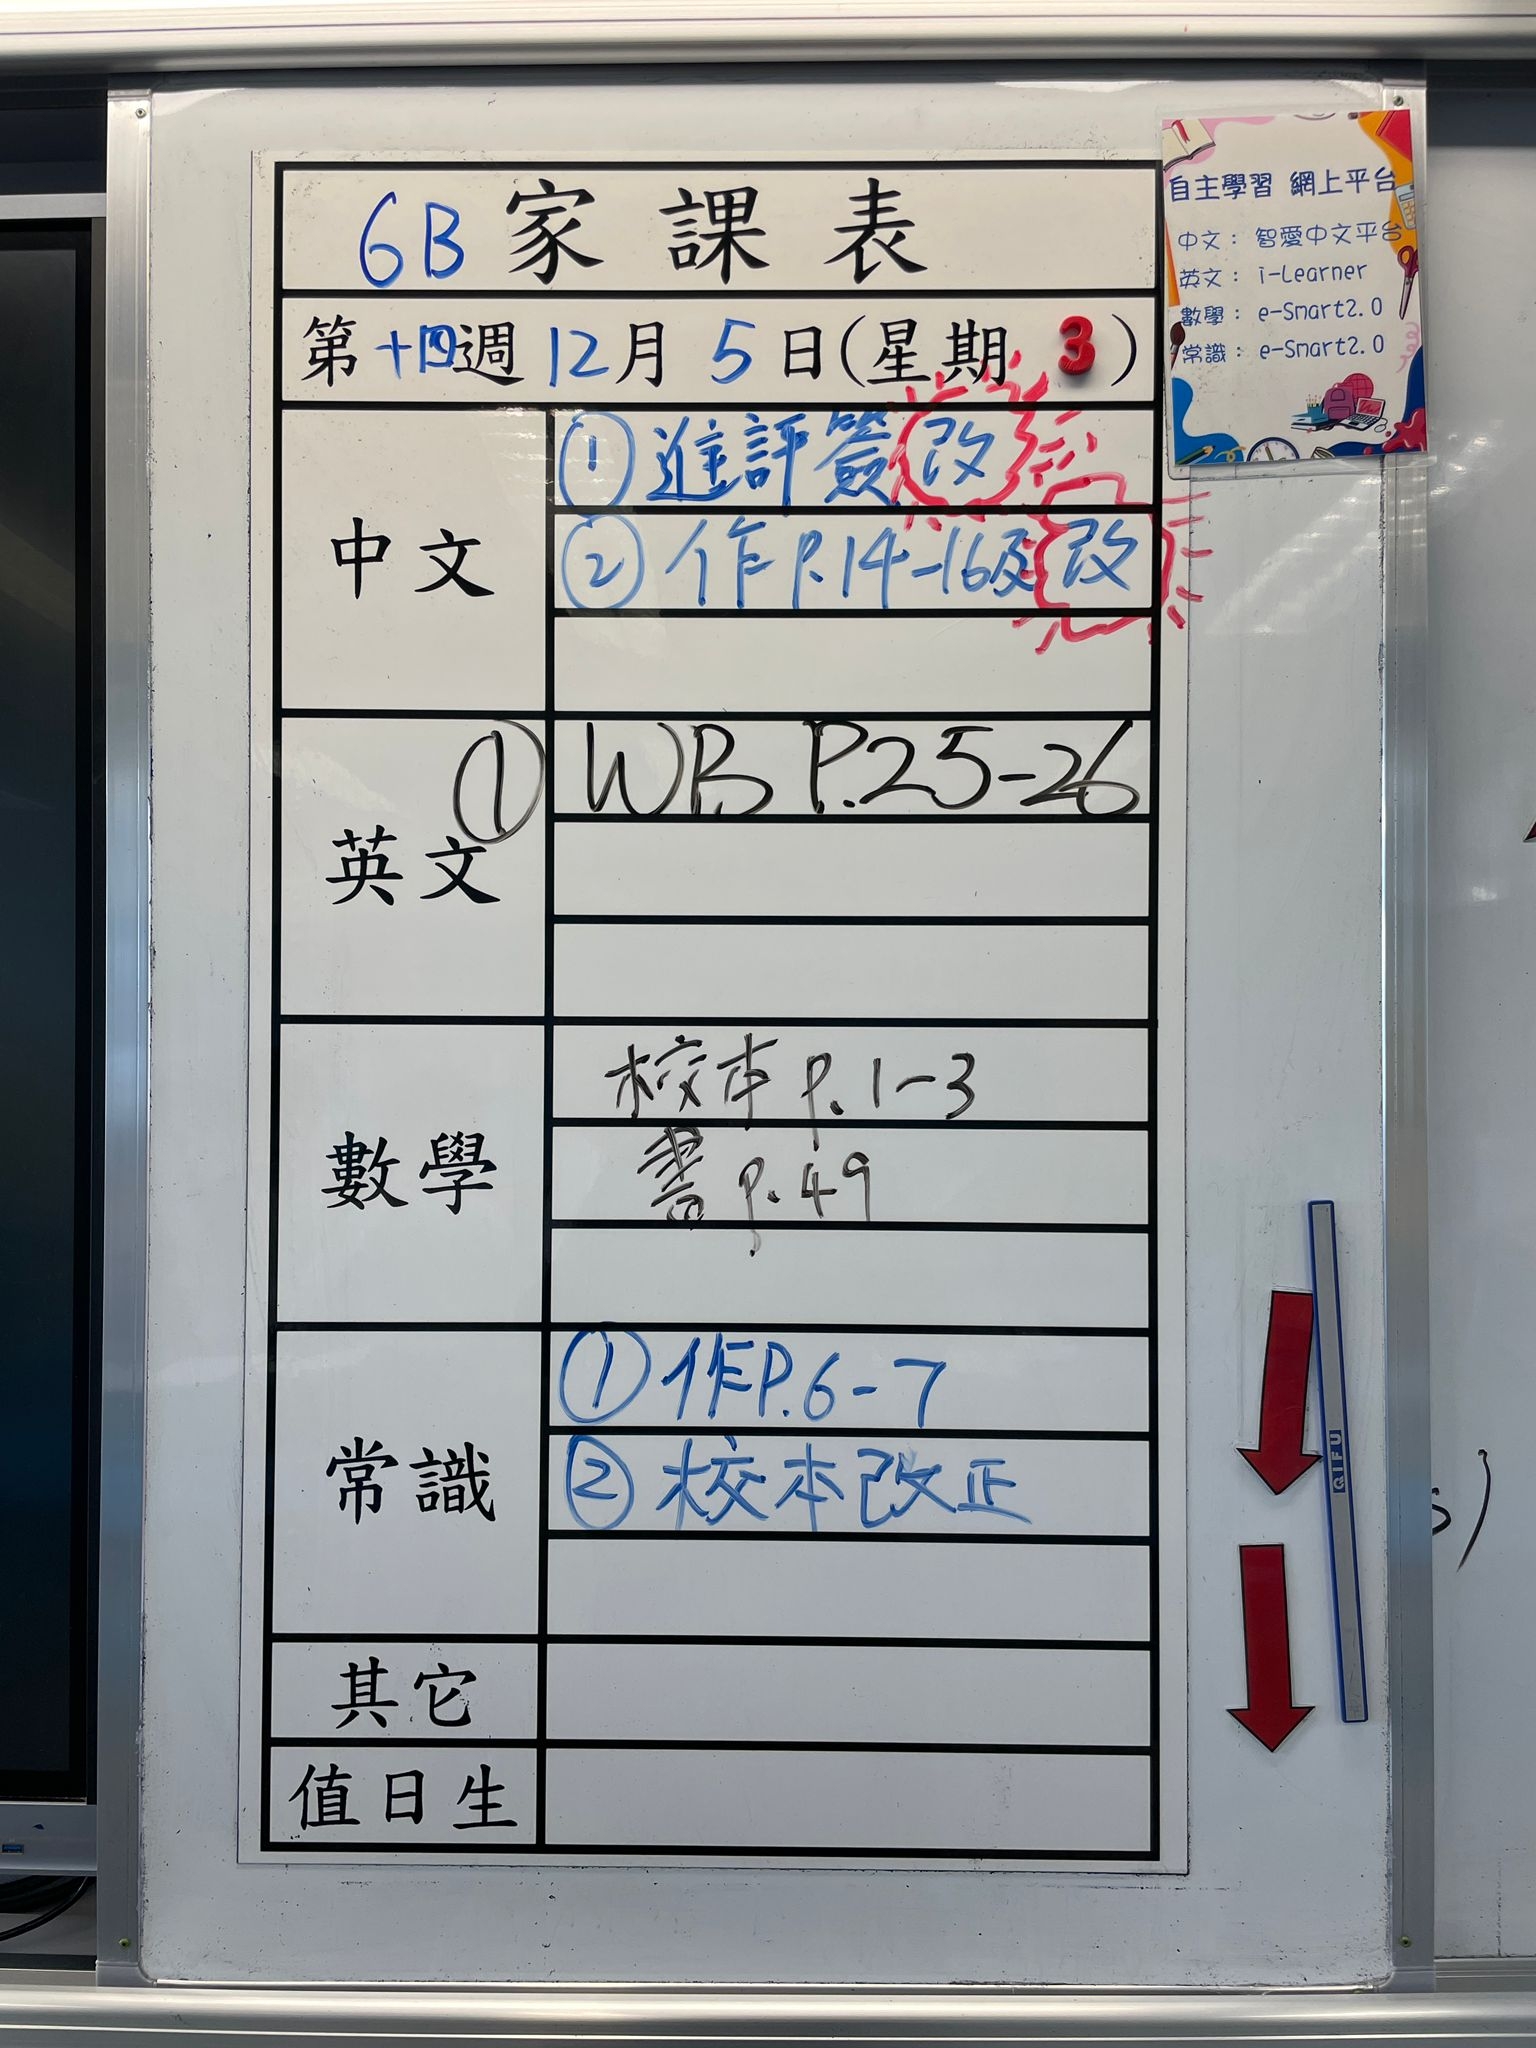 6B 家課表
第十四週 12月5日(星期3)
中文
①進評簽改
②作P.14-16及改
英文
①WB P.25-26
數學
校本P.1-3
書P.49
常識
①作P.6-7
②校本改正
其它
值日生
自主學習 網上平台
中文： 智愛中文平台
英文： i-Learner
數學： e-Smart2.0
常識： e-Smart2.0
QIFU
s)